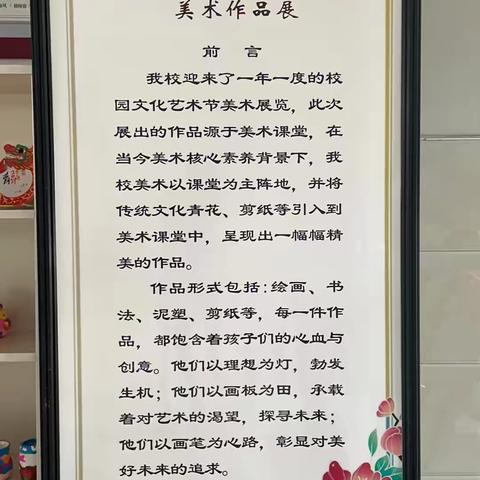 美术作品展
前 言
我校迎来了一年一度的校
园文化艺术节美术展览，此次
展出的作品源于美术课堂，在
当今美术核心素养背景下，我
校美术以课堂为主阵地，并将
传统文化青花、剪纸等引入到
美术课堂中，呈现出一幅幅精
美的作品。
作品形式包括：绘画、书
法、泥塑、剪纸等，每一件作
品，都饱含着孩子们的心血与
创意。他们以理想为灯，勃发
生机；他们以画板为田，承载
着对艺术的渴望，探寻未来；
他们以画笔为心路，彰显对美
好未来的追求。